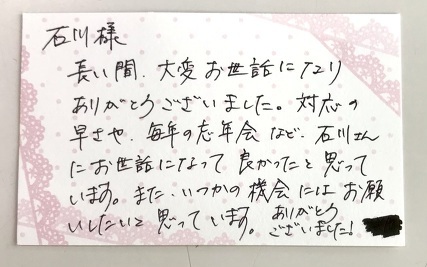 石川様
長い間、大変お世話になり
ありがとうございました。対応の
早さや、毎年の忘年会など、石川さん
にお世話になって良かったと思って
います。また、いつかの機会にはお願
いしたいと思っています。ありがとう
ございました!